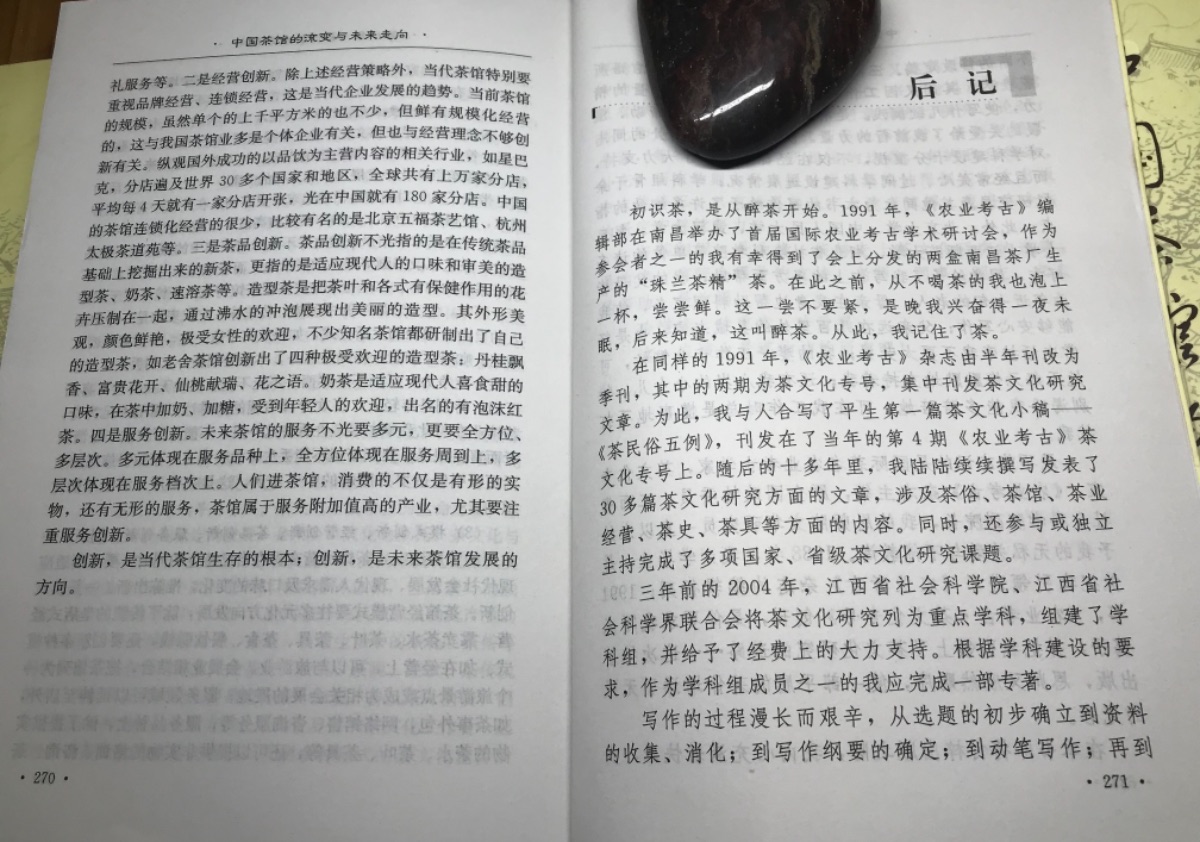 中国茶馆的流变与未来走向
礼服务等。二是经营创新。除上述经营策略外，当代茶馆特别要
重视品牌经营、连锁经营，这是当代企业发展的趋势。当前茶馆
的规模，虽然单个的上千平方米的也不少，但鲜有规模化经营
的，这与我国茶馆业多是个体企业有关，但也与经营理念不够创
新有关。纵观国外成功的以品饮为主营内容的相关行业，如星巴
克，分店遍及世界 30 多个国家和地区，全球共有上万家分店，
平均每 4 天就有一家分店开张，光在中国就有 180 家分店。中国
的茶馆连锁化经营的很少，比较有名的是北京五福茶艺馆、杭州
太极茶道苑等。三是茶品创新。茶品创新不光指的是在传统茶品
基础上挖掘出来的新茶，更指的是适应现代人的口味和审美的造
型茶、奶茶、速溶茶等。造型茶是把茶叶和各式有保健作用的花
卉压制在一起，通过沸水的冲泡展现出美丽的造型。其外形美
观，颜色鲜艳，极受女性的欢迎，不少知名茶馆都研制出了自己
的造型茶，如老舍茶馆创新出了四种极受欢迎的造型茶：丹桂飘
香、富贵花开、仙桃献瑞、花之语。奶茶是适应现代人喜食甜的
口味，在茶中加奶、加糖，受到年轻人的欢迎，出名的有泡沫红
茶。四是服务创新。未来茶馆的服务不光要多元，更要全方位、
多层次。多元体现在服务品种上，全方位体现在服务周到上，多
层次体现在服务档次上。人们进茶馆，消费的不仅是有形的实
物，还有无形的服务，茶馆属于服务附加值高的产业，尤其要注
重服务创新。
创新，是当代茶馆生存的根本；创新，是未来茶馆发展的
方向。
· 270 ·
后记
初识茶，是从醉茶开始。1991 年，《农业考古》编
辑部在南昌举办了首届国际农业考古学术研讨会，作为
参会者之一的我有幸得到了会上分发的两盒南昌茶厂生
产的“珠兰茶精”茶。在此之前，从不喝茶的我也泡上
一杯，尝尝鲜。这一尝不要紧，是晚我兴奋得一夜未
眠，后来知道，这叫醉茶。从此，我记住了茶。
在同样的 1991 年，《农业考古》杂志由半年刊改为
季刊，其中的两期为茶文化专号，集中刊发茶文化研究
文章。为此，我与人合写了平生第一篇茶文化小稿——
《茶民俗五例》，刊发在了当年的第 4 期《农业考古》茶
文化专号上。随后的十多年里，我陆陆续续撰写发表了
30 多篇茶文化研究方面的文章，涉及茶俗、茶馆、茶业
经营、茶史、茶具等方面的内容。同时，还参与或独立
主持完成了多项国家、省级茶文化研究课题。
三年前的 2004 年，江西省社会科学院、江西省社
会科学界联合会将茶文化研究列为重点学科，组建了学
科组，并给予了经费上的大力支持。根据学科建设的要
求，作为学科组成员之一的我应完成一部专著。
写作的过程漫长而艰辛，从选题的初步确立到资料
的收集、消化；到写作纲要的确定；到动笔写作；再到
· 271 ·